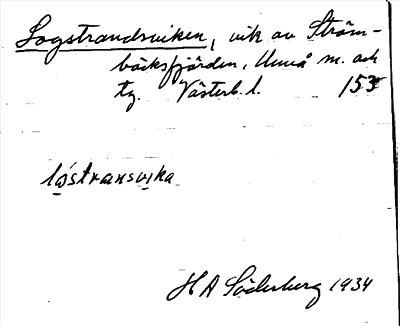 Logstrandsviken, vik av Ström-
bäcksfjärden, Umeå m. och
tg. Västerb. l. 153
lås̀transvika
H A Söderberg 1934